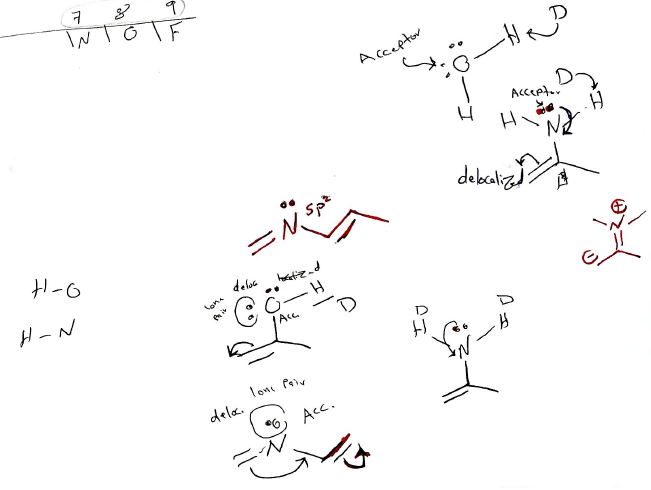 7 8 9
N O F
Acceptor
O H D
H
Acceptor
D
H N H
delocalized
sp²
N
⊕
N
⊖
H-O
H-N
lone pair
deloc
localized
O H
D
Acc.
D D
H H
N
lone pair
deloc.
Acc.
N